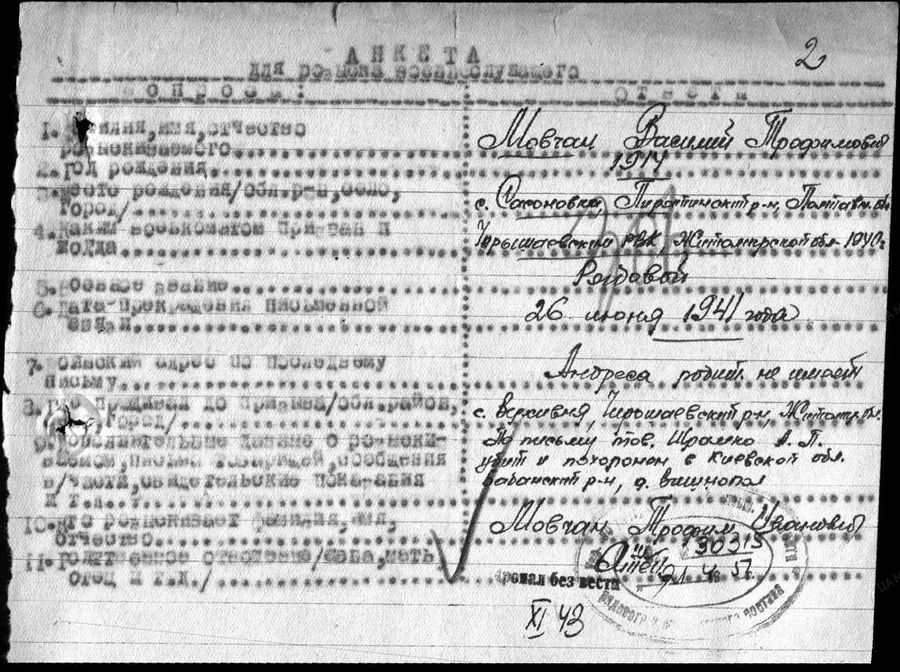 2
АНКЕТА
для розыска военнослужащего
Вопросы:
Ответы
1. Фамилия, имя, отчество
разыскиваемого
Мовчан Василий Трофимович
2. Год рождения
1914
3. Место рождения/обл. р-н, село,
город/
с. Сасоновка, Пирятинский р-н, Полтавск. обл
4. Каким военкоматом призван и
когда
РВК Житомирской обл. 1940 г.
5. Военное звание
Рядовой
6. Дата прекращения письменной
связи
26 июня 1941 года
7. Воинский адрес по последнему
письму
Андреса родит. не имеет
8. Где проживал до призыва/обл. район,
город/
с. Верховня, р-н, Житом. обл.
9. Дополнительные данные о разыски-
ваемом, письма товарищей, сообщения
в/части, свидетельские показания
и т.д.
По письму тов. Шрамко А. П.
убит и похоронен в Киевской обл.
Бабанский р-н, д. Вишнопол
10. Кто разыскивает фамилия, имя,
отчество
Мовчан Трофим Иванович
11. Родственное отношение/жена, мать
отец и т.д./
Отец
30315
21 4 57.
пропал без вести
XI 43
рядового и состава